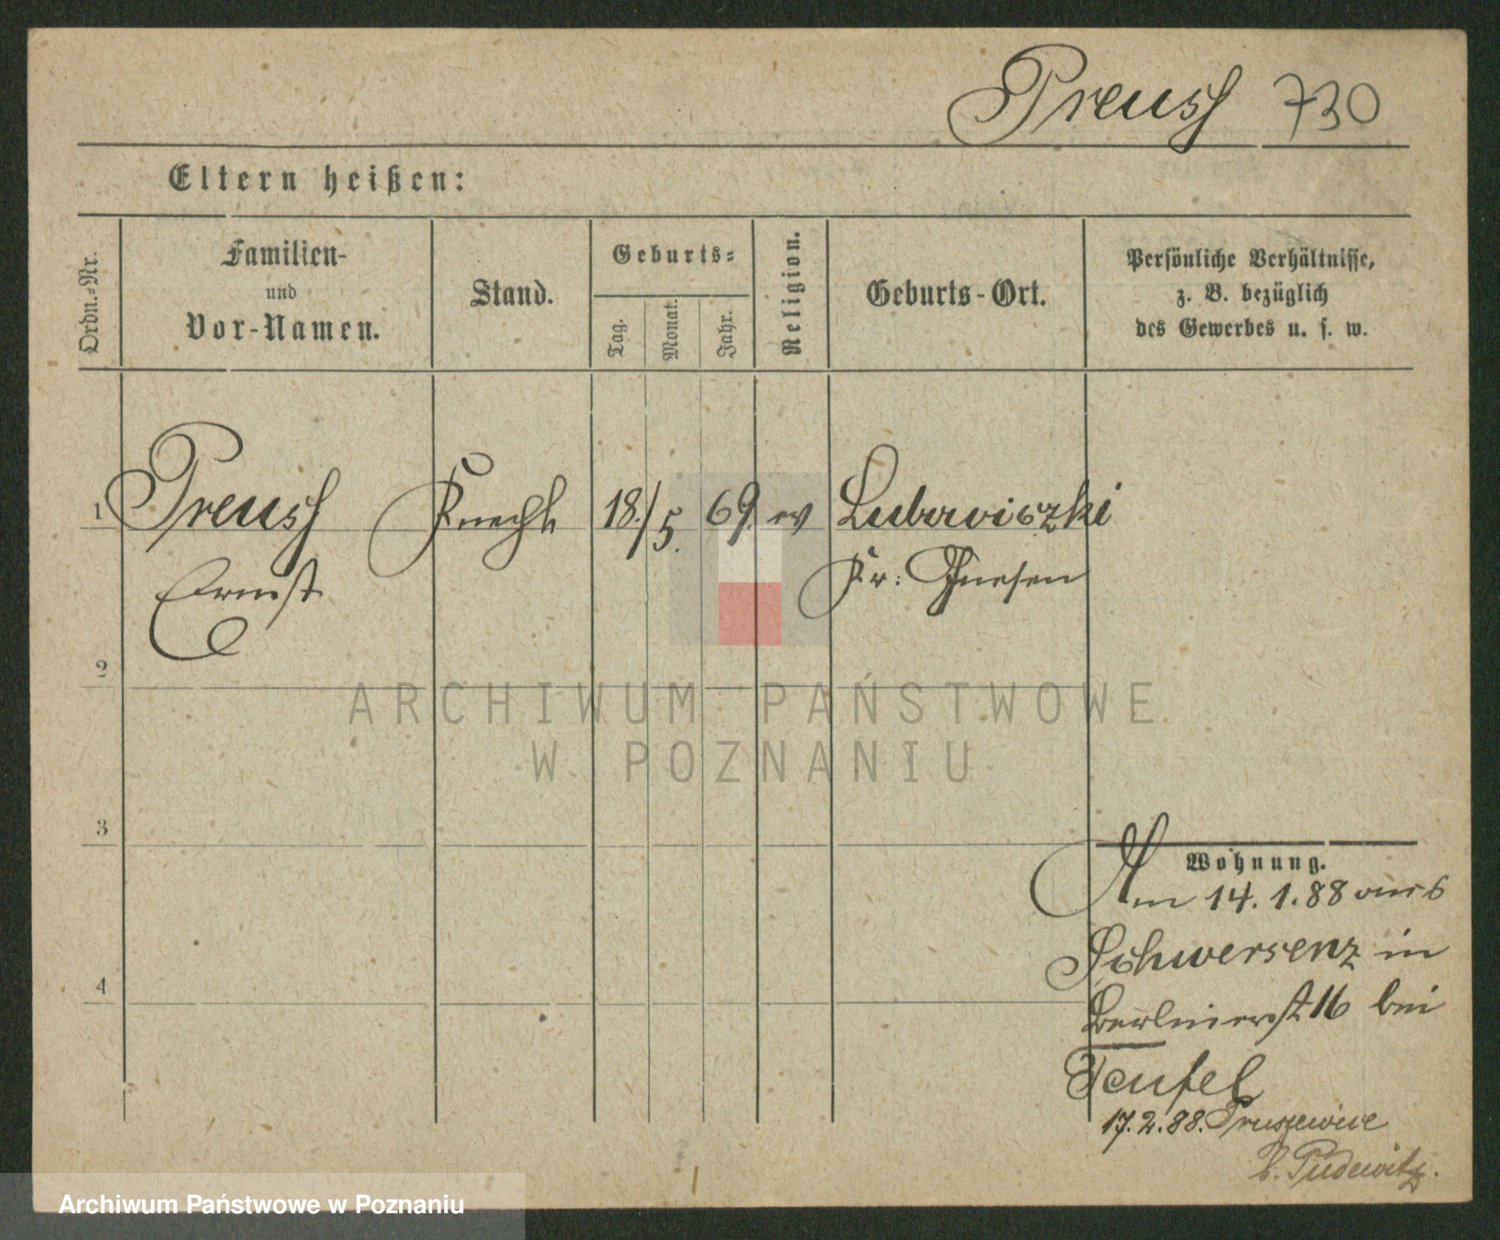 Preuss 730
Eltern heißen:
Ordn.-Nr.
Familien-
und
Vor-Namen.
Stand.
Geburts-
Tag.
Monat.
Jahr.
Religion.
Geburts-Ort.
Persönliche Verhältnisse,
z. B. bezüglich
des Gewerbes u. s. w.
1 Preuss Knecht 18./5. 69. ev
Ernst Kr: Gnesen
2
ARCHIWUM PAŃSTWOWE
W POZNANIU
3
Wohnung.
Am 14.1.88 aus
Schwersenz in
4
Berlinerst 16 bei
Teufel
17.2.88.
b. Pudewitz.
Archiwum Państwowe w Poznaniu